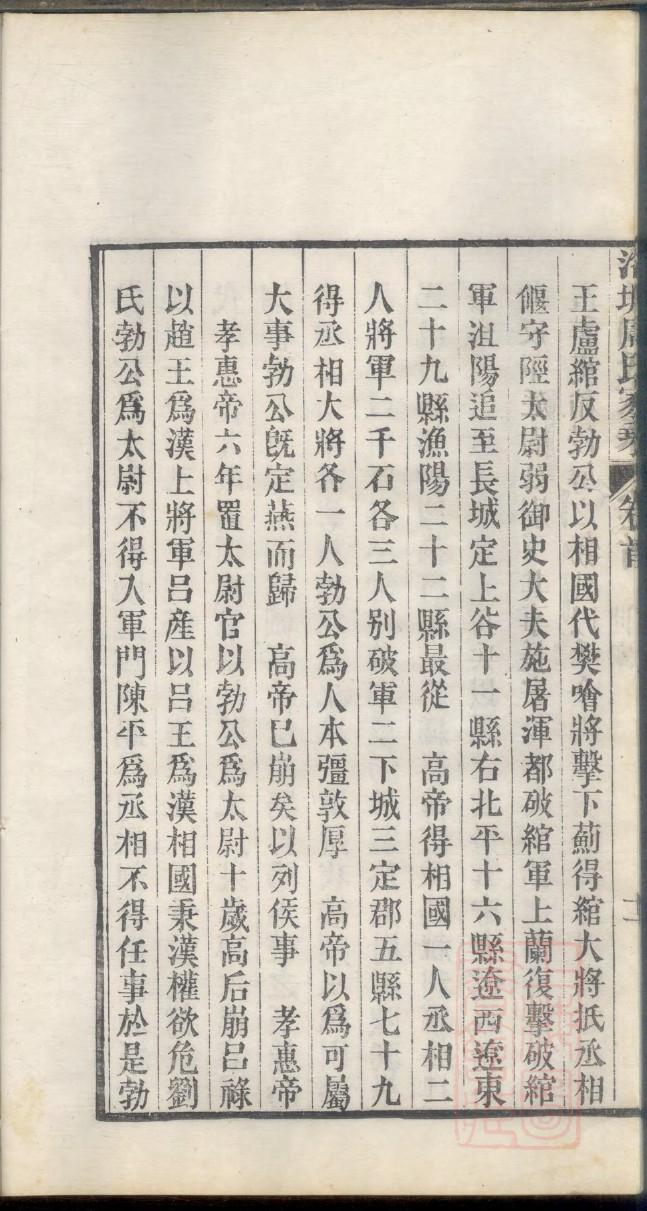 王盧綰反勃公以相國代樊噲將擊下薊得綰大將抵丞相
偃守陘太尉弱御史大夫施屠渾都破綰軍上蘭復擊破綰
軍沮陽追至長城定上谷十一縣右北平十六縣遼西遼東
二十九縣漁陽二十二縣最從　高帝得相國一人丞相二
人將軍二千石各三人別破軍二下城三定郡五縣七十九
得丞相大將各一人勃公爲人本彊敦厚　高帝以爲可屬
大事勃公旣定燕而歸　高帝已崩矣以列侯事　孝惠帝
孝惠帝六年置太尉官以勃公爲太尉十歲高后崩呂祿
以趙王爲漢上將軍呂產以呂王爲漢相國秉漢權欲危劉
氏勃公爲太尉不得入軍門陳平爲丞相不得任事於是勃